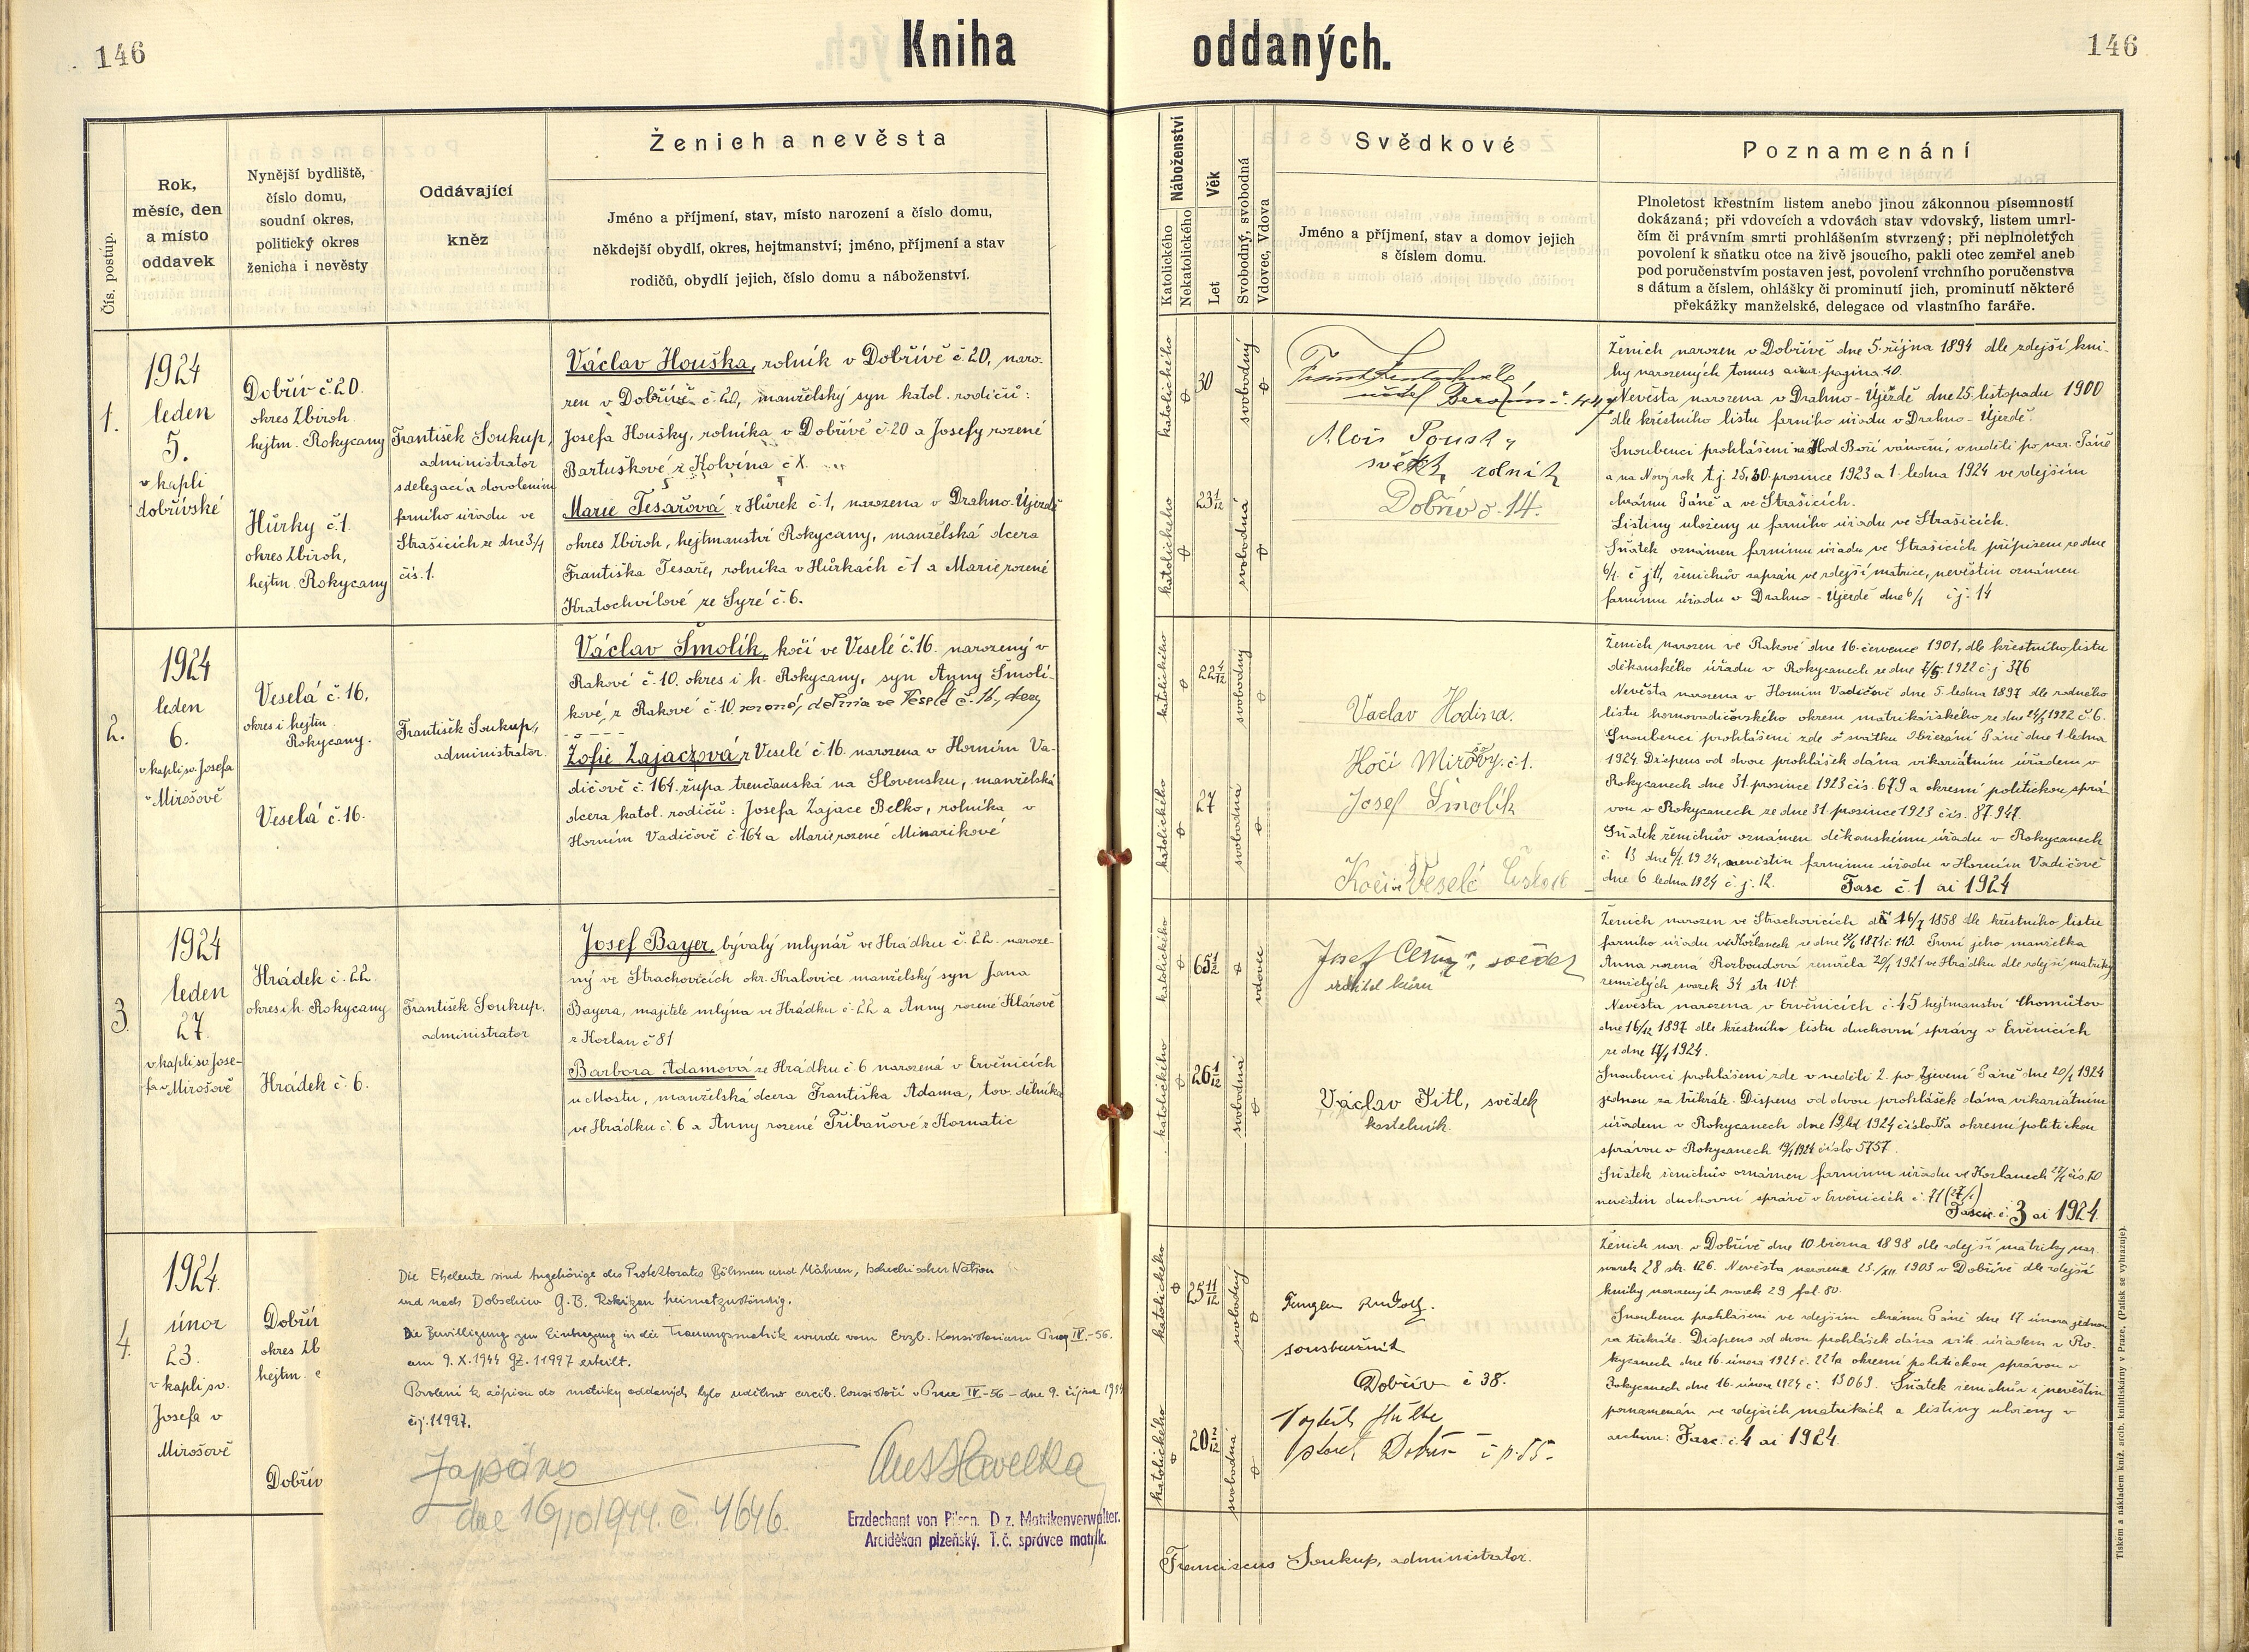 146
Kniha
oddaných.
146
Čís. postup.
Rok,
měsíc, den
a místo
oddavek
Nynější bydliště,
číslo domu,
soudní okres,
politický okres
ženicha i nevěsty
Oddávající
kněz
Ženich a nevěsta
Jméno a příjmení, stav, místo narození a číslo domu,
někdejší obydlí, okres, hejtmanství; jméno, příjmení a stav
rodičů, obydlí jejich, číslo domu a náboženství.
Náboženství
Katolického
Nekatolického
Věk
Let
Svobodný, svobodná
Vdovec, Vdova
Svědkové
Jméno a příjmení, stav a domov jejich
s číslem domu.
Poznamenání
Plnoletost křestním listem anebo jinou zákonnou písemností
dokázaná; při vdovcích a vdovách stav vdovský, listem umrl-
čím či právním smrti prohlášením stvrzený; při neplnoletých
povolení k sňatku otce na živě jsoucího, pakli otec zemřel aneb
pod poručenstvím postaven jest, povolení vrchního poručenstva
s dátum a číslem, ohlášky či prominutí jich, prominutí některé
překážky manželské, delegace od vlastního faráře.
1.
1924
leden
5.
v kapli
dobřívské
Dobřív č. 20.
okres Zbiroh
hejtm. Rokycany
Hůrky č. 1.
okres Zbiroh,
hejtm. Rokycany
František Soukup,
administrator
s delegací a dovolením
farního úřadu ve
Strašicích ze dne 3/1
čís. 1.
Václav Houška, rolník v Dobřívě č. 20, naro-
zen v Dobřívě č. 20, manželský syn katol. rodičů:
Josefa Houšky, rolníka v Dobřívě č 20 a Josefy rozené
Bartuškové z Kolvína č X.
Marie Tesařová z Hůrek č. 1, narozena v Drahno-Újezdě
okres Zbiroh, hejtmanství Rokycany, manželská dcera
Františka Tesaře, rolníka v Hůrkách č 1 a Marie rozené
Kratochvílové ze Syré č. 6.
katolického
30
svobodný
katolického
23 1/12
svobodná
č. 44
Alois
svědek, rolník
Dobřív č. 14.
Ženich narozen v Dobřívě dne 5. října 1894 dle zdejší kni-
hy narozených tomus pagina 40.
Nevěsta narozena v Drahno-Újezdě dne 25. listopadu 1900
dle křestního listu farního úřadu v Drahno-Újezdě.
Snoubenci prohlášeni na Hod Boží vánoční, v neděli po nar. Páně
a na Nový rok t. j. 25, 30. prosince 1923 a 1. ledna 1924 ve zdejším
chrámu Páně a ve Strašicích.
Listiny uloženy u farního úřadu ve Strašicích.
Sňatek oznámen farnímu úřadu ve Strašicích přípisem ze dne
6/1. č. j. 11, ženichův zapsán ve zdejší matrice, nevěstin oznámen
farnímu úřadu v Drahno-Újezdě dne 6/1 č j. 14
2.
1924
leden
6.
v kapli sv. Josefa
v Mirošově
Veselá č. 16,
okres i hejtm.
Rokycany.
Veselá č. 16.
František Soukup,
administrator.
Václav Šmolík, kočí ve Veselé č. 16. narozený v
Rakové č. 10. okres i h. Rokycany, syn Anny Šmolí-
kové, z Rakové č. 10 ve Veselé č. 16,
Žofie Zajaczová z Veselé č. 16. narozena v Horním Va-
dičově č. 164. župa trenčanská na Slovensku, manželská
dcera katol. rodičů: Josefa Zajace Belko, rolníka v
Horním Vadičově č. 164 a Marie rozené Minarikové
katolického
svobodný
katolického
27
svobodná
Vaclav Hodina.
Kočí č. 1.
Josef Šmolík
Kočí ve Veselé
Ženich narozen ve Rakové dne 16. července 1901, dle křestního listu
děkanského úřadu v Rokycanech ze dne 1922 č. j 376
Nevěsta narozena v Horním Vadičově dne 5. ledna 1897 dle rodného
listu hornovadičovského okresu matrikářského ze dne 1922 č. 6.
Snoubenci prohlášeni zde o svátku Obřezání Páně dne 1. ledna
1924. Dispens od dvou prohlášek dána vikariátním úřadem v
Rokycanech dne 31. prosince 1923 čís. 679 a okresní politickou sprá-
vou v Rokycanech ze dne 31. prosince 1923 čís. 87.947.
Sňatek ženichův oznámen děkanskému úřadu v Rokycanech
č. 13 dne 6/1. 1924, nevěstin farnímu úřadu v Horním Vadičově
dne 6 ledna 1924 č. j. 12. Fasc č. 1 ai 1924
3.
1924
leden
27.
v kapli sv. Jose-
fa v Mirošově
Hrádek č. 22.
okres i h. Rokycany
Hrádek č. 6.
František Soukup.
administrator
Josef Bayer, bývalý mlynář ve Hrádku č. 22. naroze-
ný ve Strachovicích okr. Kralovice manželský syn Jana
Bayera, majitele mlýna ve Hrádku č. 22 a Anny rozené Klárové
z Kozlan č 81
Barbora Adamová ze Hrádku č. 6 narozená v Ervěnicích
u Mostu, manželská dcera Františka Adama, tov. dělníka
ve Hrádku č. 6 a Anny rozené Přibaňové z Kornatic
katolického
65
vdovec
katolického
26 1/12
svobodná
Josef svědek
ředitel kůru
Václav Titl, svědek
kostelník.
Ženich narozen ve Strachovicích dne 16/7 1858 dle křestního listu
farního úřadu v Kožlanech ze dne 1871 č. 110. První jeho manželka
Anna rozená Rozboudová zemřela 20/1 1921 ve Hrádku dle zdejší matriky
zemřelých svazek 34 str 104.
Nevěsta narozena v Ervěnicích č. 45 hejtmanství Chomútov
dne 16/12 1897 dle křestního listu duchovní správy v Ervěnicích
ze dne 17/1 1924.
Snoubenci prohlášeni zde v neděli 2. po Zjevení Páně dne 20/1 1924
jednou za třikráte. Dispens od dvou prohlášek dána vikariátním
úřadem v Rokycanech dne 1924 číslo a okresní politickou
správou v Rokycanech 19/1 1924 číslo 5757.
Sňatek ženichův oznámen farnímu úřadu ve Kozlanech
nevěstin duchovní správě v Ervěnicích č. 71 (27/1)
Fascic. č. 3 ai 1924.
4.
1924.
únor
23.
v kapli sv.
Josefa v
Mirošově
Dobřív
okres Zb
hejtm.
Dobřív
Die Eheleute sind Angehörige des Protektorates Böhmen und Mähren, tschechischer Nation
und nach Dobschiw G.B. Rokitzan heimatzuständig.
Die Bewilligung zur Eintragung in die Trauungsmatrik wurde vom Erzb. Konsistorium Prag IV.-56.
am 9. X. 1944 GZ. 11997 erteilt.
Povolení k zápisu do matriky oddaných bylo uděleno arcib. konsistoří v Praze IV.-56 – dne 9. října 1944
č.j. 11997.
Zapsáno
dne 16/10 1944. č. 4646.
Ant Havelka
Erzdechant von Pilsen. D. z. Matrikenverwalter.
Arciděkan plzeňský. T. č. správce matrik.
katolického
25 11/12
svobodný
katolického
20 2/12
svobodná
Rudolf.
soustružník
Dobřív č 38.
Vojtěch
Dobřív č p. 55.
Ženich nar. v Dobřívě dne 10 března 1898 dle zdejší matriky nar.
svazek 28 str. 126. Nevěsta narozena 23./XII. 1903 v Dobřívě dle zdejší
knihy narozených svazek 29 fol. 80.
Snoubenci prohlášeni ve zdejším chrámu Páně dne 17 února jednou
za třikráte. Dispens od dvou prohlášek dána vik. úřadem v Ro-
kycanech dne 16. února 1924 č. 221a okresní politickou správou v
Rokycanech dne 16. února 1924 č. 13063. Sňatek ženichův i nevěstin
poznamenán ve zdejších matrikách a listiny uloženy v
archivu: Fasc. č. 4 ai 1924.
Franciscus Soukup, administrator.
Tiskem a nákladem kníž. arcib. knihtiskárny v Praze. (Patisk se vyhrazuje).